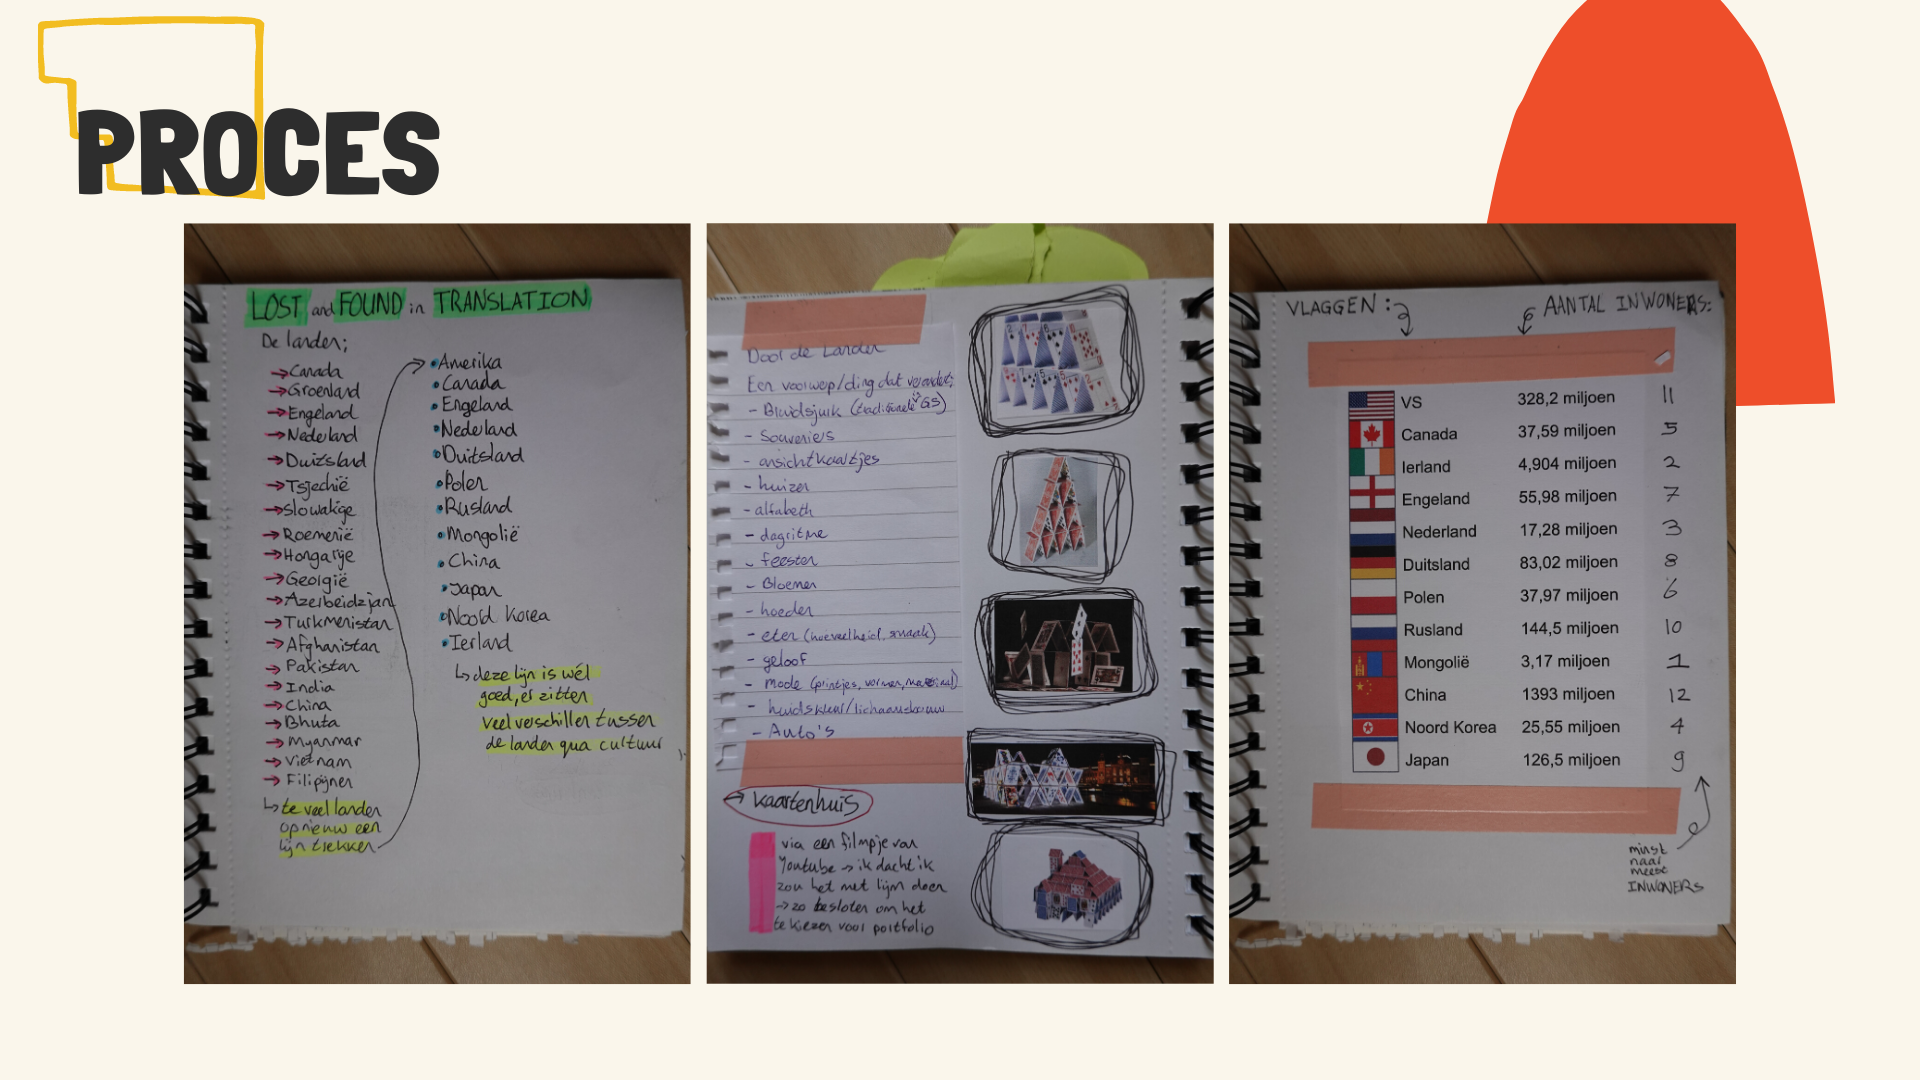 PROCES
LOST and FOUND in TRANSLATION
De landen;
→Canada
→Groenland
→Engeland
→Nederland
→Duitsland
→Tsjechië
→Slowakije
→Roemenië
→Hongarije
→Georgië
→Azerbeidzjan
→Turkmenistan
→Afghanistan
→Pakistan
→India
→China
→Bhuta
→Myanmar
→Vietnam
→Filipijnen
↳te veel landen
opnieuw een
lijn trekken
•Amerika
•Canada
•Engeland
•Nederland
•Duitsland
•Polen
•Rusland
•Mongolië
•China
•Japan
•Noord Korea
•Ierland
↳deze lijn is wél
goed, er zitten
veel verschillen tussen
de landen qua cultuur
Door de Landen
Een voorwerp/ding dat verandert:
- Bruidsjurk (traditionele
- Souveniers
- ansichtkaartjes
- huizen
- alfabeth
- dagritme
- feesten
- Bloemen
- hoeden
- eten (hoeveelheid, smaak)
- geloof
- mode (printjes, vormen, materiaal)
- huidskleur/lichaamsbouw
- Auto's
→ kaartenhuis
via een filmpje van
Youtube → ik dacht ik
zou het met lijm doen
→ zo besloten om het
te kiezen voor portfolio
VLAGGEN:
AANTAL INWONERS:
VS 328,2 miljoen 11
Canada 37,59 miljoen 5
Ierland 4,904 miljoen 2
Engeland 55,98 miljoen 7
Nederland 17,28 miljoen 3
Duitsland 83,02 miljoen 8
Polen 37,97 miljoen 6
Rusland 144,5 miljoen 10
Mongolië 3,17 miljoen 1
China 1393 miljoen 12
Noord Korea 25,55 miljoen 4
Japan 126,5 miljoen 9
minst
naar
meest
INWONERS